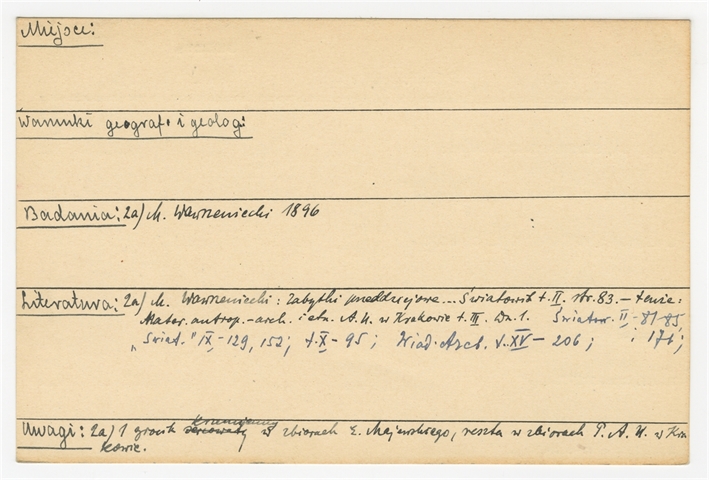 Miejsce:
Warunki geograf. i geolog:
Badania: 2a/ M. Wawrzeniecki 1896
Literatura: 2a/ M. Wawrzeniecki: Zabytki przeddziejowe... Światowit t. II. str. 83. – tenże:
Mater. antrop.-arch. i etn. A. U. w Krakowie t. III. Dz. 1. Światow. II – 81-85
„Świat." IX – 129, 152; t. X – 95; Wiad. Arch. t. XV – 206; i 176;
Uwagi: 2a/ 1 grocik sercowaty krzemienny w zbiorach E. Majewskiego, reszta w zbiorach P. A. U. w Kra
kowie.